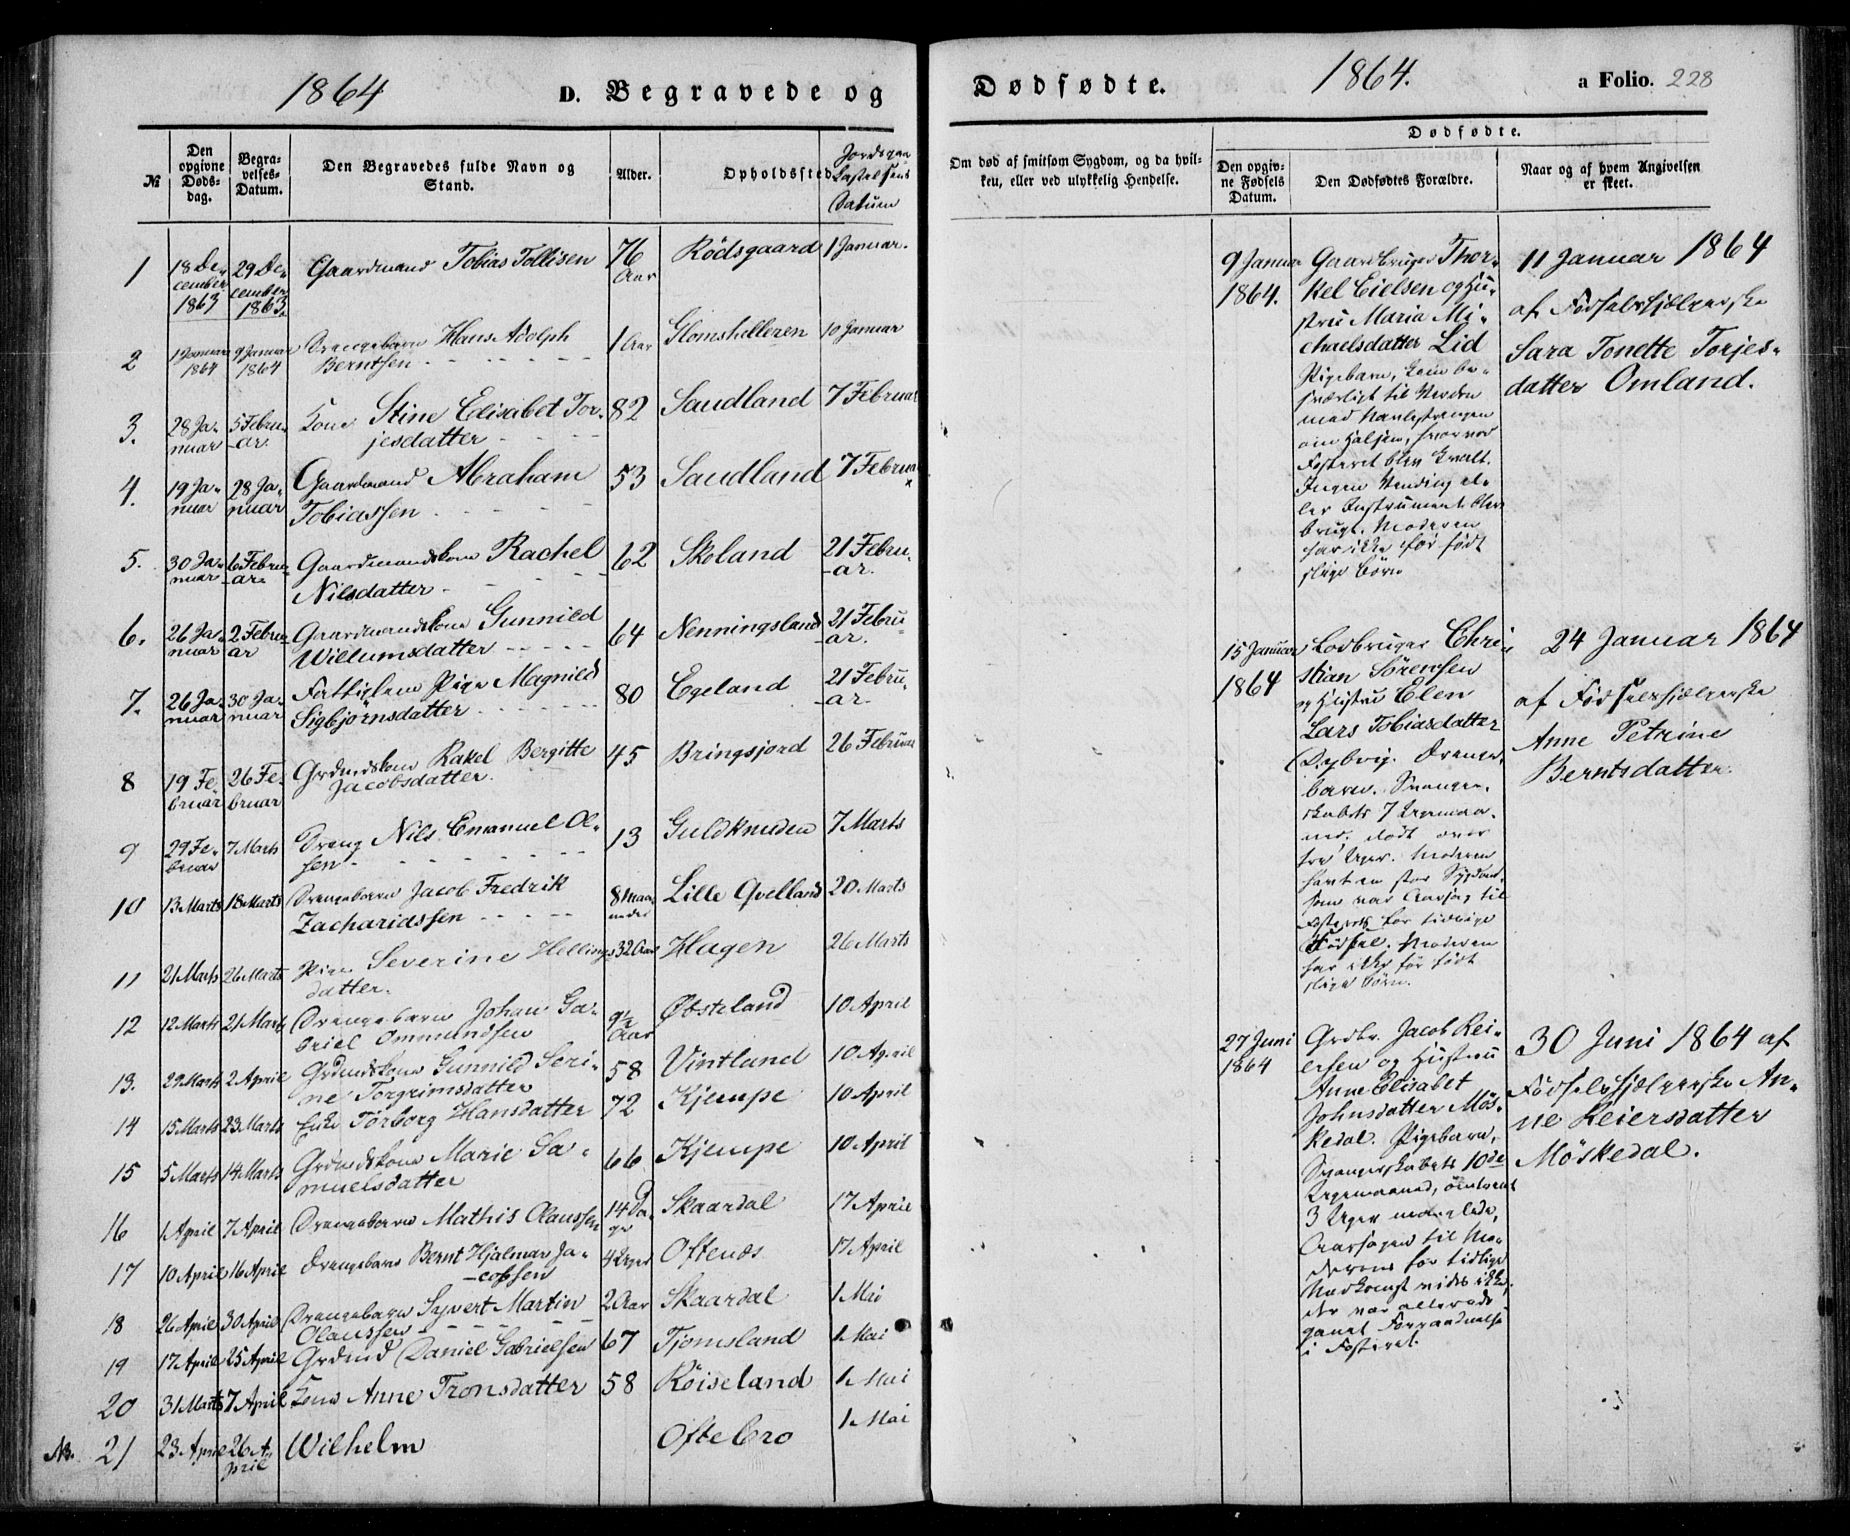 1864
D. Begravede og
№
Den opgivne Døds-dag.
Begra-velses-Datum.
Den Begravedes fulde Navn og Stand.
Alder.
Opholdssted
Jordspaa-kastelsens Datum
1 18 De-cember 1863 29 De-cember 1863. Gaardmand Tobias Tollisen 76 Aar Rödsgaard 1 Januar.
2 1 Januar 1864 9 Januar 1864 Drengebarn Hans Adolph Berntsen 1 Aar Glomshelleren 10 Januar
3. 28 Ja-nuar 5 Febru-ar. Kone Stine Elisabet Tor-jesdatter 82 Sandland 7 Februar
4. 19 Ja-nuar 28 Ja-nuar Gaardmand Abraham Tobiassen 53 Sandland 7 Februar
5. 30 Ja-nuar 6 Febru-ar. Gaardmandskone Rachel Nilsdatter 62 Skoland 21 Febru-ar.
6. 26 Ja-nuar 2 Febru-ar Gaardmandskone Gunnild Willumsdatter 64 Nenningsland 21 Febru-ar.
7. 26 Ja-nuar 30 Ja-nuar Fattiglem Pige Magnild Sigbjörnsdatter 80 Egeland 21 Febru-ar.
8 19 Fe-bruar 26 Fe-bruar Grdmdskone Rakel Bergitte Jacobsdatter. 45 Bringsjord 26 Februar
9 29 Fe-bruar 7 Marts Dreng Nils Emanuel Ol-sen 13 Guldknuden 7 Marts
10 13 Marts 18 Marts Drengebarn Jacob Fredrik Zachariassen 8 Maa-neder Lille Qvelland 20 Marts
11 21 Marts 26 Marts Pige Severine Hellings-datter. 32 Aar Hagen 26 Marts
12 12 Marts 21 Marts Drengebarn Johan Ga-briel Ommundsen 9½ Aar Øbsteland 10 April
13. 29 Marts 2 April Grdmdskone Gunnild Seri-ne Torgrimsdatter 58 Vintland 10 April
14 15 Marts 23 Marts Enke Torborg Hansdatter 72 Kjempe 10 April
15 5 Marts 14 Marts Grdmdskone Marie Sa-muelsdatter 66 Kjempe 10 April
16 1 April 7 April Drengebarn Mathis Olaussen 14 Da-ge Skaardal 17 April
17 10 April 16 April Drengebarn Bernt Hjalmar Ja-cobsen 4 Uger Oftenes 17 April
18 26 April 30 April Drengebarn Syvert Martin Olaussen 2 Aar Skaardal 1 Mai
19 17 April 25 April Grdmd Daniel Gabrielsen 67 Tjomsland 1 Mai
20 31 Marts 7 April Kone Anne Tronsdatter 58 Röiseland 1 Mai
NB. 21 23 April 26 A-pril Wilhelm Oftebro 1 Mai
Dødfødte.
1864.
a Folio. 228
Om død af smitsom Sygdom, og da hvil-ken, eller ved ulykkelig Hendelse.
Dødfødte.
Den opgiv-ne Fødsels Datum.
Den Dødfødtes Forældre.
Naar og af hvem Angivelsen er skeet.
9 Januar 1864.
Gaardbruger Thor-
kel Eielsen og Hu-
stru Maria Mi-
chaelsdatter Lid
Pigebarn, kom be-
sværligt til Verden
med Navlestrengen
om Halsen, hvorved
Fosteret blev kvalt.
Ingen Vending el-
ler Instrument blev
brugt. Moderen
har ikke før født
slige Børn
11 Januar 1864
af Fødselshjælperske
Sara Tonette Torjes-
datter Omland.
15 Januar 1864
Lodbruger Chri-
stian Sörensen
og Hustru Elen
Lars Tobiasdatter
Dybvig. Drenge-
barn. Svanger-
skabets 7 Ugemaa-
ned, dødt over
tre Uger. Moderen
havt en stor Sygdom,
som var Aarsag til
Fosterets for tidlige
Fødsel. Moderen
har ikke før født
slige Børn.
24 Januar 1864
af Fødselshjælperske
Anne Petrine
Berntsdatter.
27 Juni 1864
Grdbr. Jacob Rei-
ersen og Hustru
Anne Elisabet
Johnsdatter Mös-
kedal. Pigebarn,
Svangerskabets 10de
Ugemaaned, omtrent
3 Uger manglede,
Aarsagen til Mo-
derens for tidlige
Nedkomst vides ikke,
der var allerede
gaaet Forraadnelse
i Fosteret.
30 Juni 1864 af
Fødselshjælperske An-
ne Reiersdatter
Möskedal.